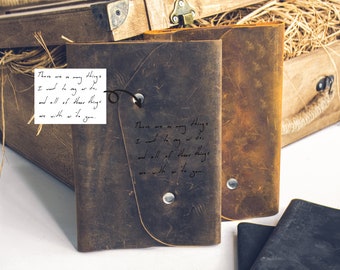 There are so many things
I want to say or do,
and all of those things
are with or to you.
There are so many things
I want to say or do,
and all of those things
are with or to you.